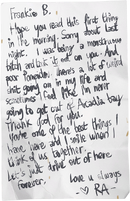 Frankie B.
Hope you read this first thing
in the morning. Sorry about last
night. I was being a monstruous
bitch and but it out on you. And
poor Pompidou. There's a lot of weird
shit going on in my life and
sometimes I feel like I'm never
going to get out of Arcadia Bay
Thank God for you.
You're one of the best things I
have here and I smile when I
think of us together.
Let's just drive out of here
Forever.
Love u always
RA